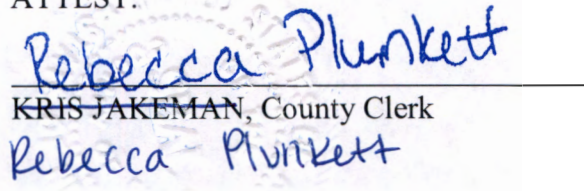 ATTEST:
Rebecca Plunkett
KRIS JAKEMAN, County Clerk
Rebecca Plunkett